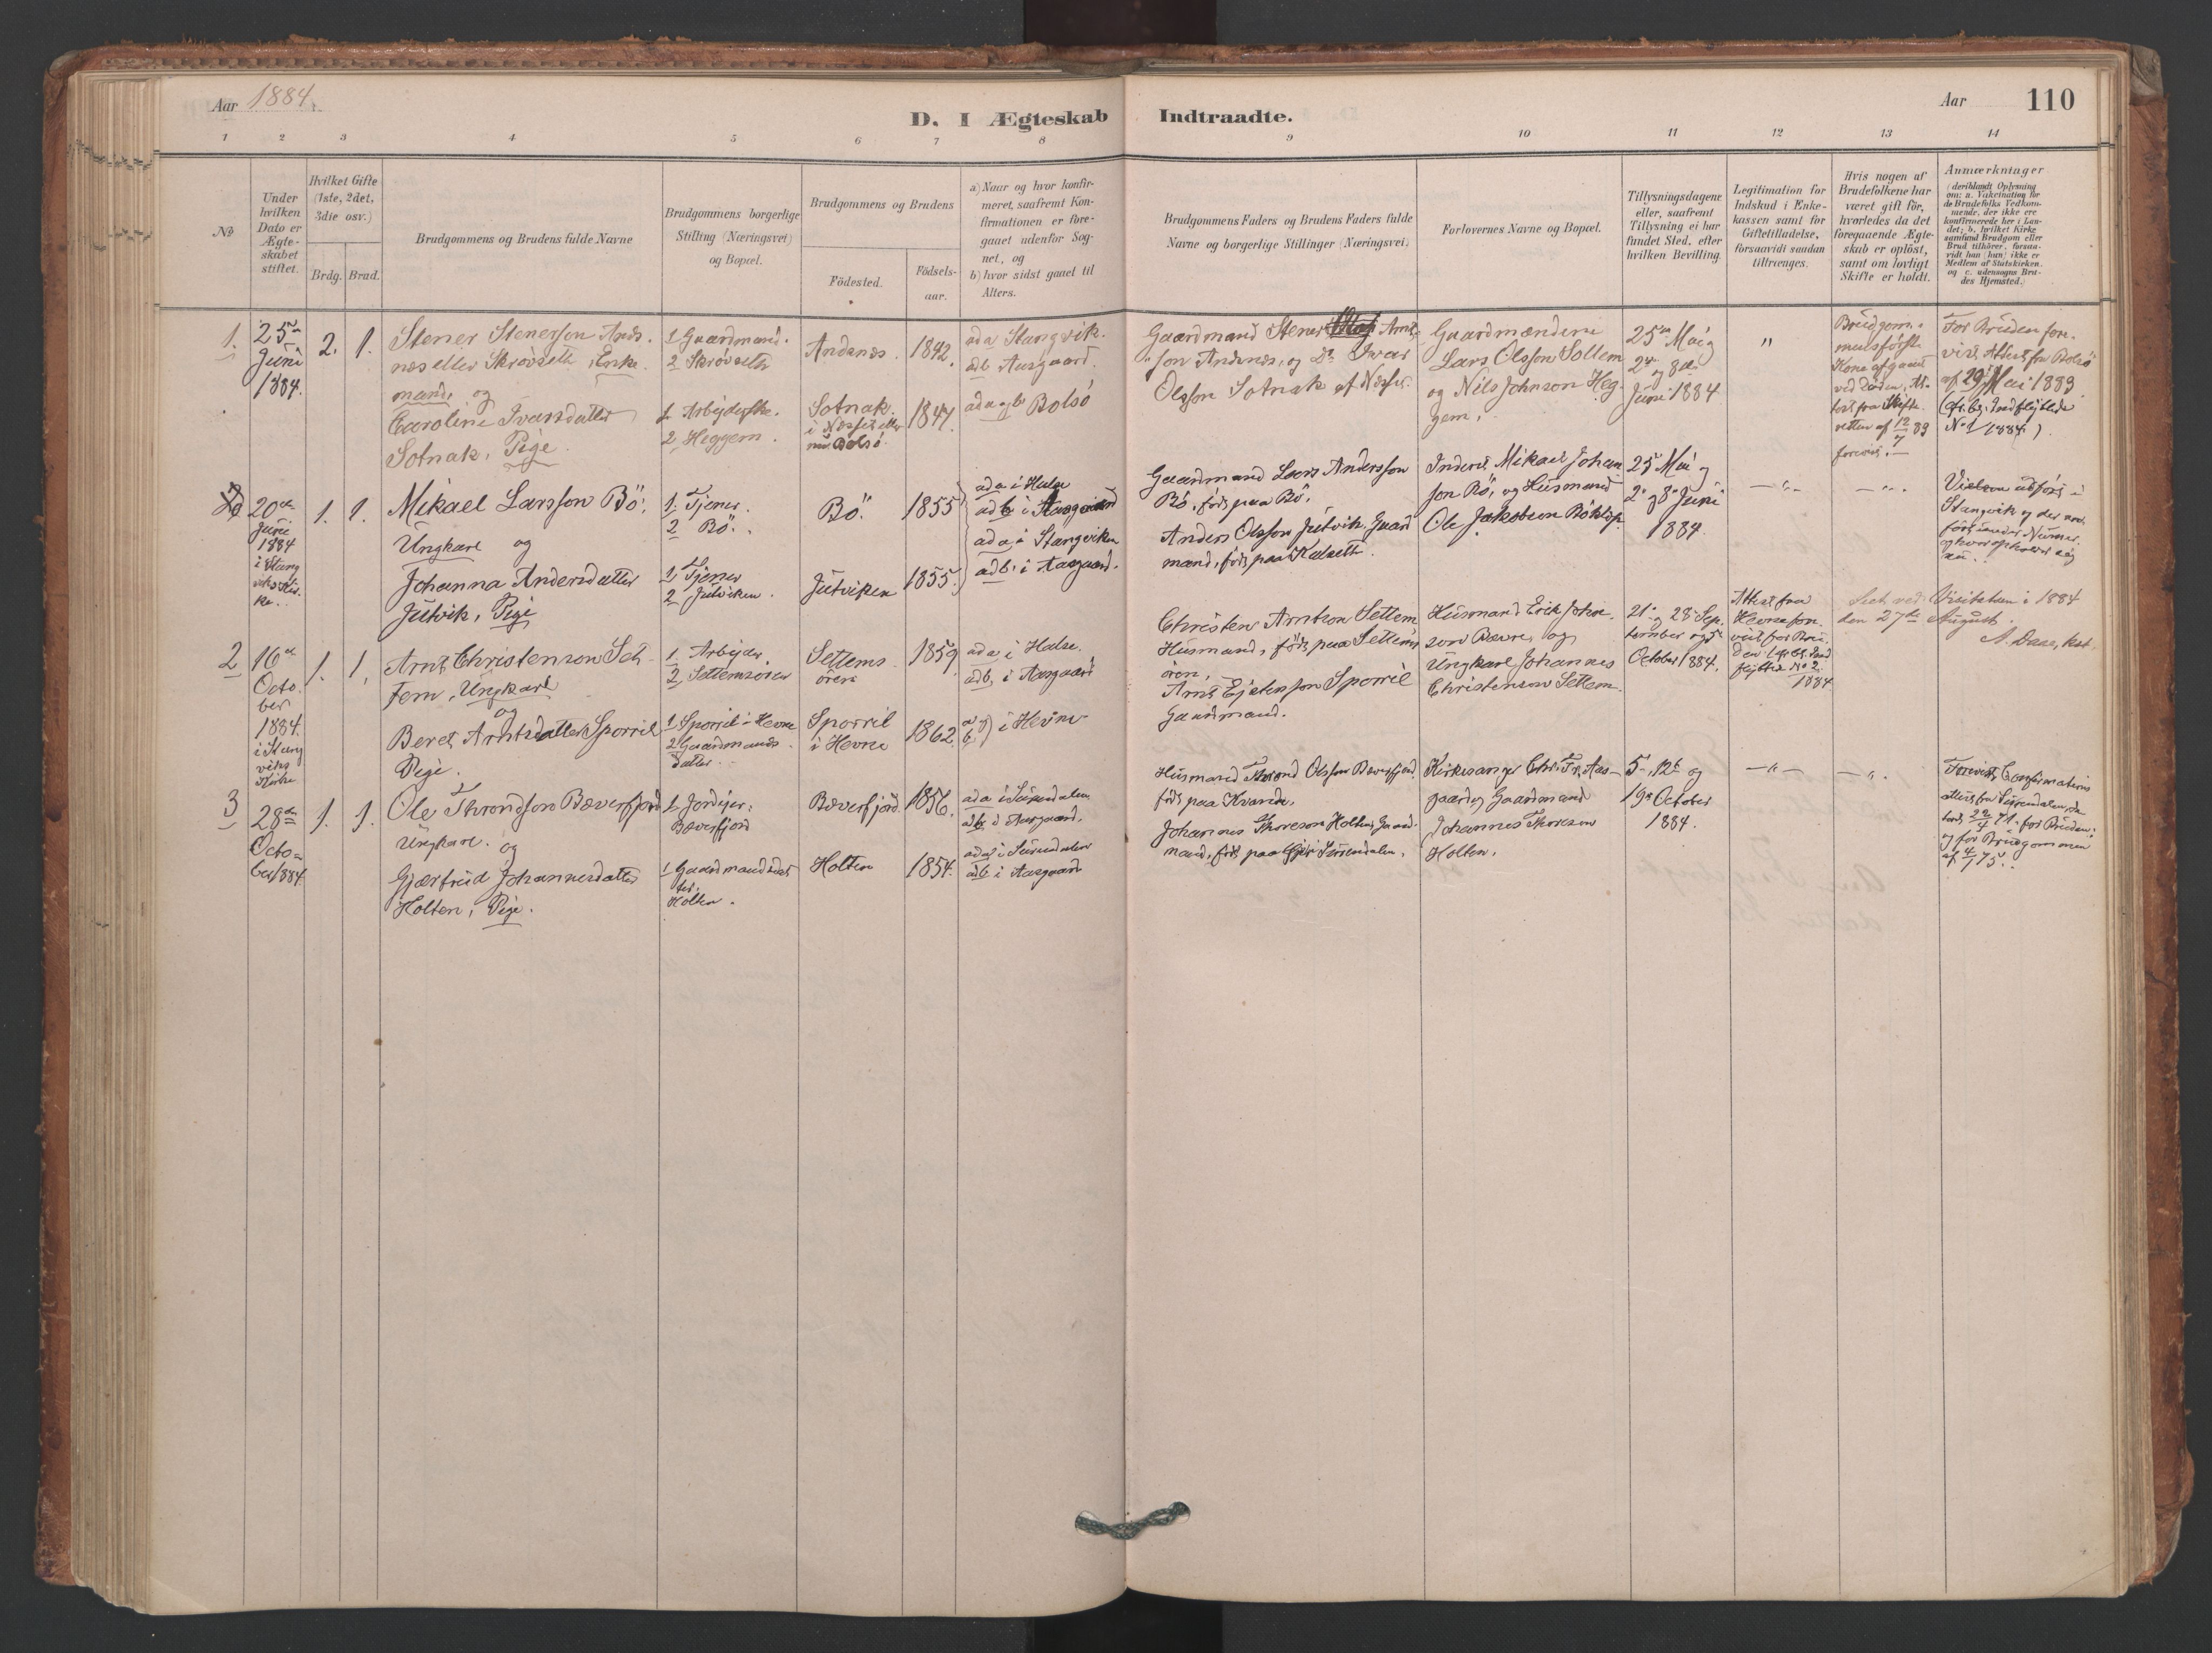 Aar 1884.
D. I Ægteskab Indtraadte.
Aar 110
1 2 3 4 5 6 7 8 9 10 11 12 13 14
No
Under
hvilken
Dato er
Ægte-
skabet
stiftet.
Hvilket Gifte
(1ste, 2det,
3die osv.)
Brdg. Brud.
Brudgommens og Brudens fulde Navne
Brudgommens borgerlige
Stilling (Næringsvei)
og Bopæl.
Brudgommens og Brudens
Födested.
Födsels-
aar.
a) Naar og hvor konfir-
meret, saafremt Kon-
firmationen er fore-
gaaet udenfor Sog-
net, og
b) hvor sidst gaaet til
Alters.
Brudgommens Faders og Brudens Faders fulde
Navne og borgerlige Stillinger (Næringsvei)
Forlovernes Navne og Bopæl.
Tillysningsdagene
eller, saafremt
Tillysning ei har
fundet Sted, efter
hvilken Bevilling.
Legitimation for
Indskud i Enke-
kassen samt for
Giftetilladelse,
forsaavidt saadan
tiltrænges.
Hvis nogen af
Brudefolkene har
været gift för,
hvorledes da det
foregaaende Ægte-
skab er oplöst,
samt om lovligt
Skifte er holdt.
Anmærkninger
(deriblandt Oplysning
om: a. Vakcination for
de Brudefolks Vedkom-
mende, der ikke ere
konfirmerede her i Lan-
det; b. hvilket Kirke-
samfund Brudgom eller
Brud tilhörer, forsaa-
vidt han (hun) ikke er
Medlem af Statskirken.
og c. udensogns Bru-
des Hjemsted.)
1.
25de
Juni
1884.
2. 1.
Stener Stenerson Ands-
nes eller Skrövseth, Enke-
mand, og
Caroline Ivarsdatter
Sotnak, Pige.
1 Gaardmand.
2 Skrövseth
1. Arbejderske.
2 Heggem.
Andsnes.
Sotnak
i Nesset eller
nu Bolsö.
1842.
1847.
ad a Stangvik.
ad b Aasgaard.
ad a og b Bolsö
Gaardmand Stener Arnt-
son Andsnes, og Do Iwar
Olsson Sotnak af Nesset.
Gaardmændene
Lars Olsson Sollem
og Nils Johnson Heg-
gem.
25de Mai og
2den og 8de
Juni 1884
"
Brudgom-
mens förste
Kone afgaaet
ved Döden, At-
test fra Skifte-
retten af 12/7 83
forevist.
For Bruden fore-
vist Attest fra Bolsö
af 29 Mai 1883
(cfr. bg. Indflyttede
No 1 1884).
20de
Juni
1884
i Stang-
viks Kir-
ke.
1. 1.
Mikael Larsson Bö,
Ungkarl og
Johanna Andersdatter
Jutvik, Pige
1, Tjener.
2 Bö.
1, Tjener
2 Jutviken.
Bö.
Jutviken
1855
1855.
ad a i Halse
ad b i Aasgaard
ad a i Stangviken
ad b. i Aasgaard.
Gaardmand Lars Andersson
Bö, föds paa Bö.
Anders Olsson Jutvik, Gaard-
mand, föds paa Kalseth.
Inderst Mikael Johan-
son Bö, og Husmand
Ole Jakobson Böklöp.
25 Mai og
2. og 8 Juni
1884.
—"—
—"—
Vielsen udfört i
Stangvik og der ind-
fört under Numer.
2
16de
Octo-
ber
1884.
i Stang-
viks
Kirke
1. 1,
Arnt Christenson Set-
tem, Ungkarl
og
Beret Arntsdatter Sporril
Pige.
1. Arbejder,
2, Settemsören
1 Sporril i Hevne
2 Gaardmands-
datter.
Settems-
ören
Sporril
i Hevne
1859.
1862.
ad a i Halse.
ad b. i Aasgaard
a b) i Hevne
Christen Arntson Settem
Husmand, föds paa Settems
ören,
Arnt Ejstensson Sporril
Gaardmand.
Husmand Erik John-
son Bævre, og
Ungkarl Johannes
Christenson Settem.
21. og 28 Sep-
tember og 5
October 1884.
Attest fra
Hevne fore-
vist for Bru-
den (cfr. bg. Ind-
flyttede No 2.
1884
Seet ved Visitatsen i 1884
den 27de August.
3
28de
Octo-
ber 1884
1. 1.
Ole Throndson Bæverfjord
Ungkarl. og
Gjærtrud Johannesdatter
Holten, Pige.
1, Jordejer;
Bæverfjord
1 Gaardmandsdat-
ter;
Holten.
Bæverfjord.
Holten
1856.
1854.
ad a i Surendalen.
ad b i Aasgaard.
ad a i Surendalen
ad b i Aasgaard
Husmand Thrond Olsson Bæverfjord
föds paa Kvande,
Johannes Thoreson Holten, Gaard-
mand, föds paa i Surendalen.
Kirkesanger Chr. Fr. Aas-
gaard og Gaardmand
Johannes Thoreson
Holten.
5-, 12te og
19de October
1884.
—"—
—"—
Forevist Confirmations
attest fra Surendalen, da-
teret 22/4 71. for Bruden,
og for Brudgommen
af 4/1 75.